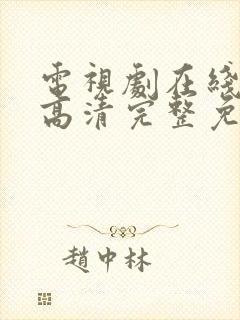 電視劇在綫
高清完整免
趙中林